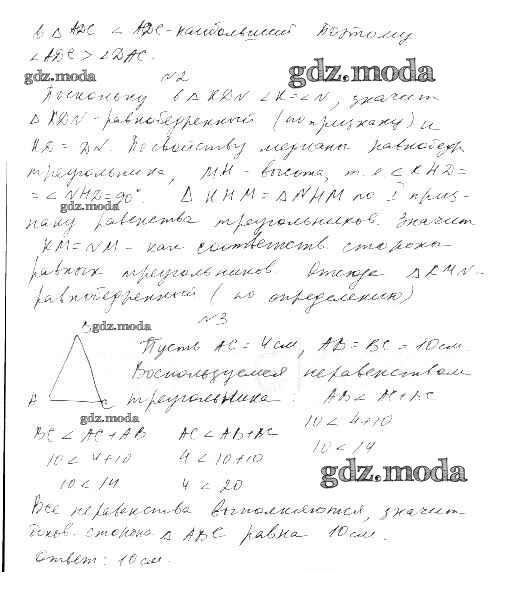 в △ ADC ∠ ADC - наибольший Поэтому
∠ADC > ∠DAC.
gdz.moda
№2
gdz.moda
Поскольку в △ KDN ∠K = ∠N, значит
△ KDN - равнобедренный (по признаку) и
KD = DN. По свойству медианы равнобедр
треугольника, MH - высота, т.е ∠KHD =
= ∠NHD = 90°. △ KHM = △NHM по I приз-
gdz.moda
наку равенства треугольников. Значит
KM = NM - как соответств. стороны
равных треугольников. Отсюда △KMN -
равнобедренный (по определению)
№3
gdz.moda
Пусть AC = 4см, AB = BC = 10см.
Воспользуемся неравенством
A C треугольника: AB <
gdz.moda
10 < 4+10
BC < AC + AB
10 < 4+10 4 < 10+10
10 < 14
gdz.moda
10 < 14 4 < 20
Все неравенства выполняются, значит
боков. сторона △ ABC равна 10см.
Ответ: 10см.